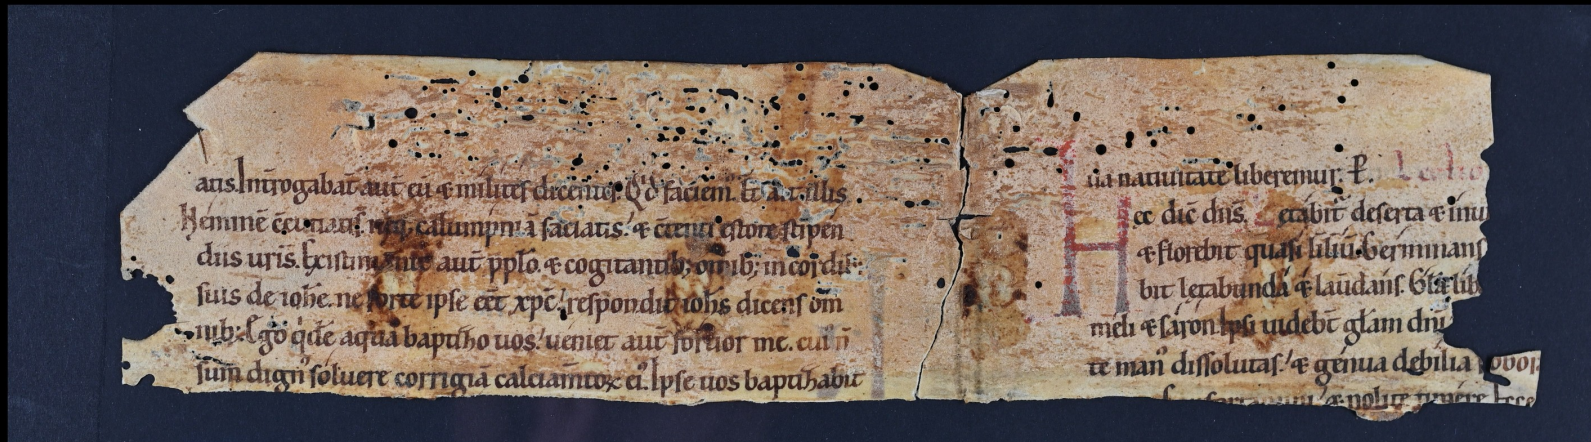 atis. Int̄rogabant aut̄ eū & milites dicentes. Qd̄ faciem̄ Et ait illis
Neminē c̄cutiatis. neq; calumpniā faciatis. & c̄tenti estote stipen
diis uris. Existimante aut̄ pplo. & cogitantib; omib; in cordib;
suis de iohe. ne forte ipse eēt xpc̄. respondit iohs dicens om̄
nib; Ego qdē aquā baptizo uos. ueniet aut̄ fortior me. cui n̄
sum dign' soluere corrigiā calciam̄toꝝ ei'. Ipse uos baptizabit
ua natiuitate liberemur. P̄.
Lectio
Hec dic̄ dns̄. Letabit̄ deserta & inu
& florebit quasi liliū. Germinans
bit letabunda & laudans. Gl̄a lib
meli & saron. Ipsi uidebt̄ gl̄am dni
te man' dissolutas. & genua debilia robor
& nolite timere. Ecce